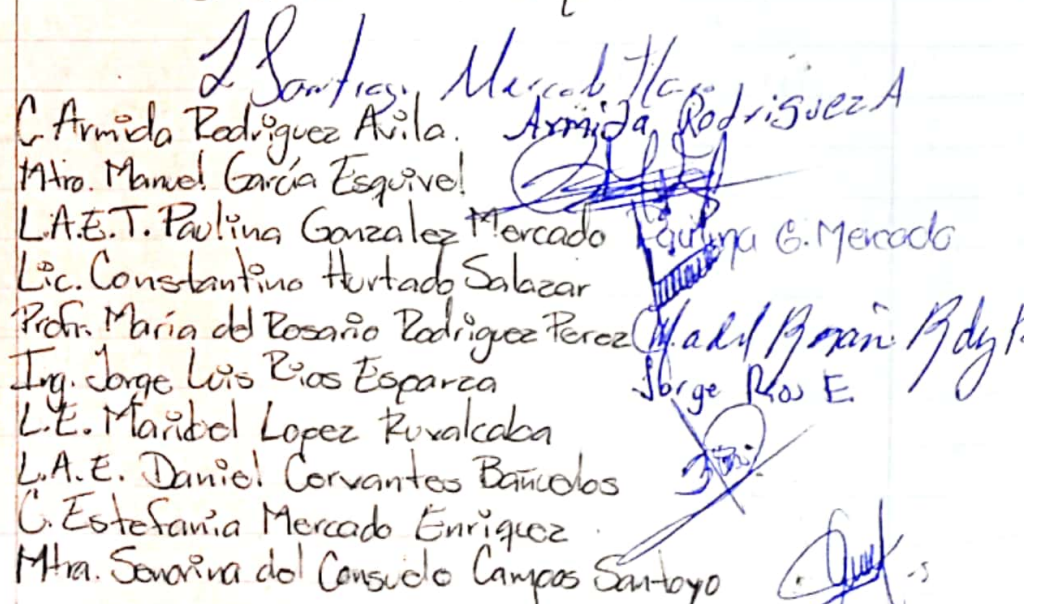 Santiago Mercado
C. Armida Rodriguez Avila. Armida Rodriguez A
Mtro. Manuel García Esquivel
L.A.E.T. Paulina Gonzalez Mercado Paulina G. Mercado
Lic. Constantino Hurtado Salazar
Profr. María del Rosario Rodriguez Perez
Ing. Jorge Luis Rios Esparza Jorge Rios E.
L.E. Maribel Lopez Ruvalcaba
L.A.E. Daniel Cervantes Bañuelos
C. Estefania Mercado Enriquez
Mtra. Senorina del Consuelo Campos Santoyo